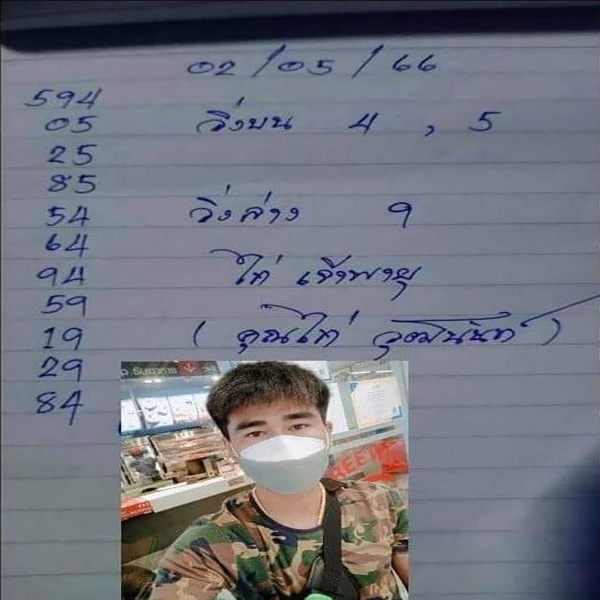 02/05/66
594
05
วิ่งบน 4 , 5
25
85
54
วิ่งล่าง 9
64
94
ไก่ เจ้าพายุ
59
19
( คุณไก่
29
84
ธนาคาร